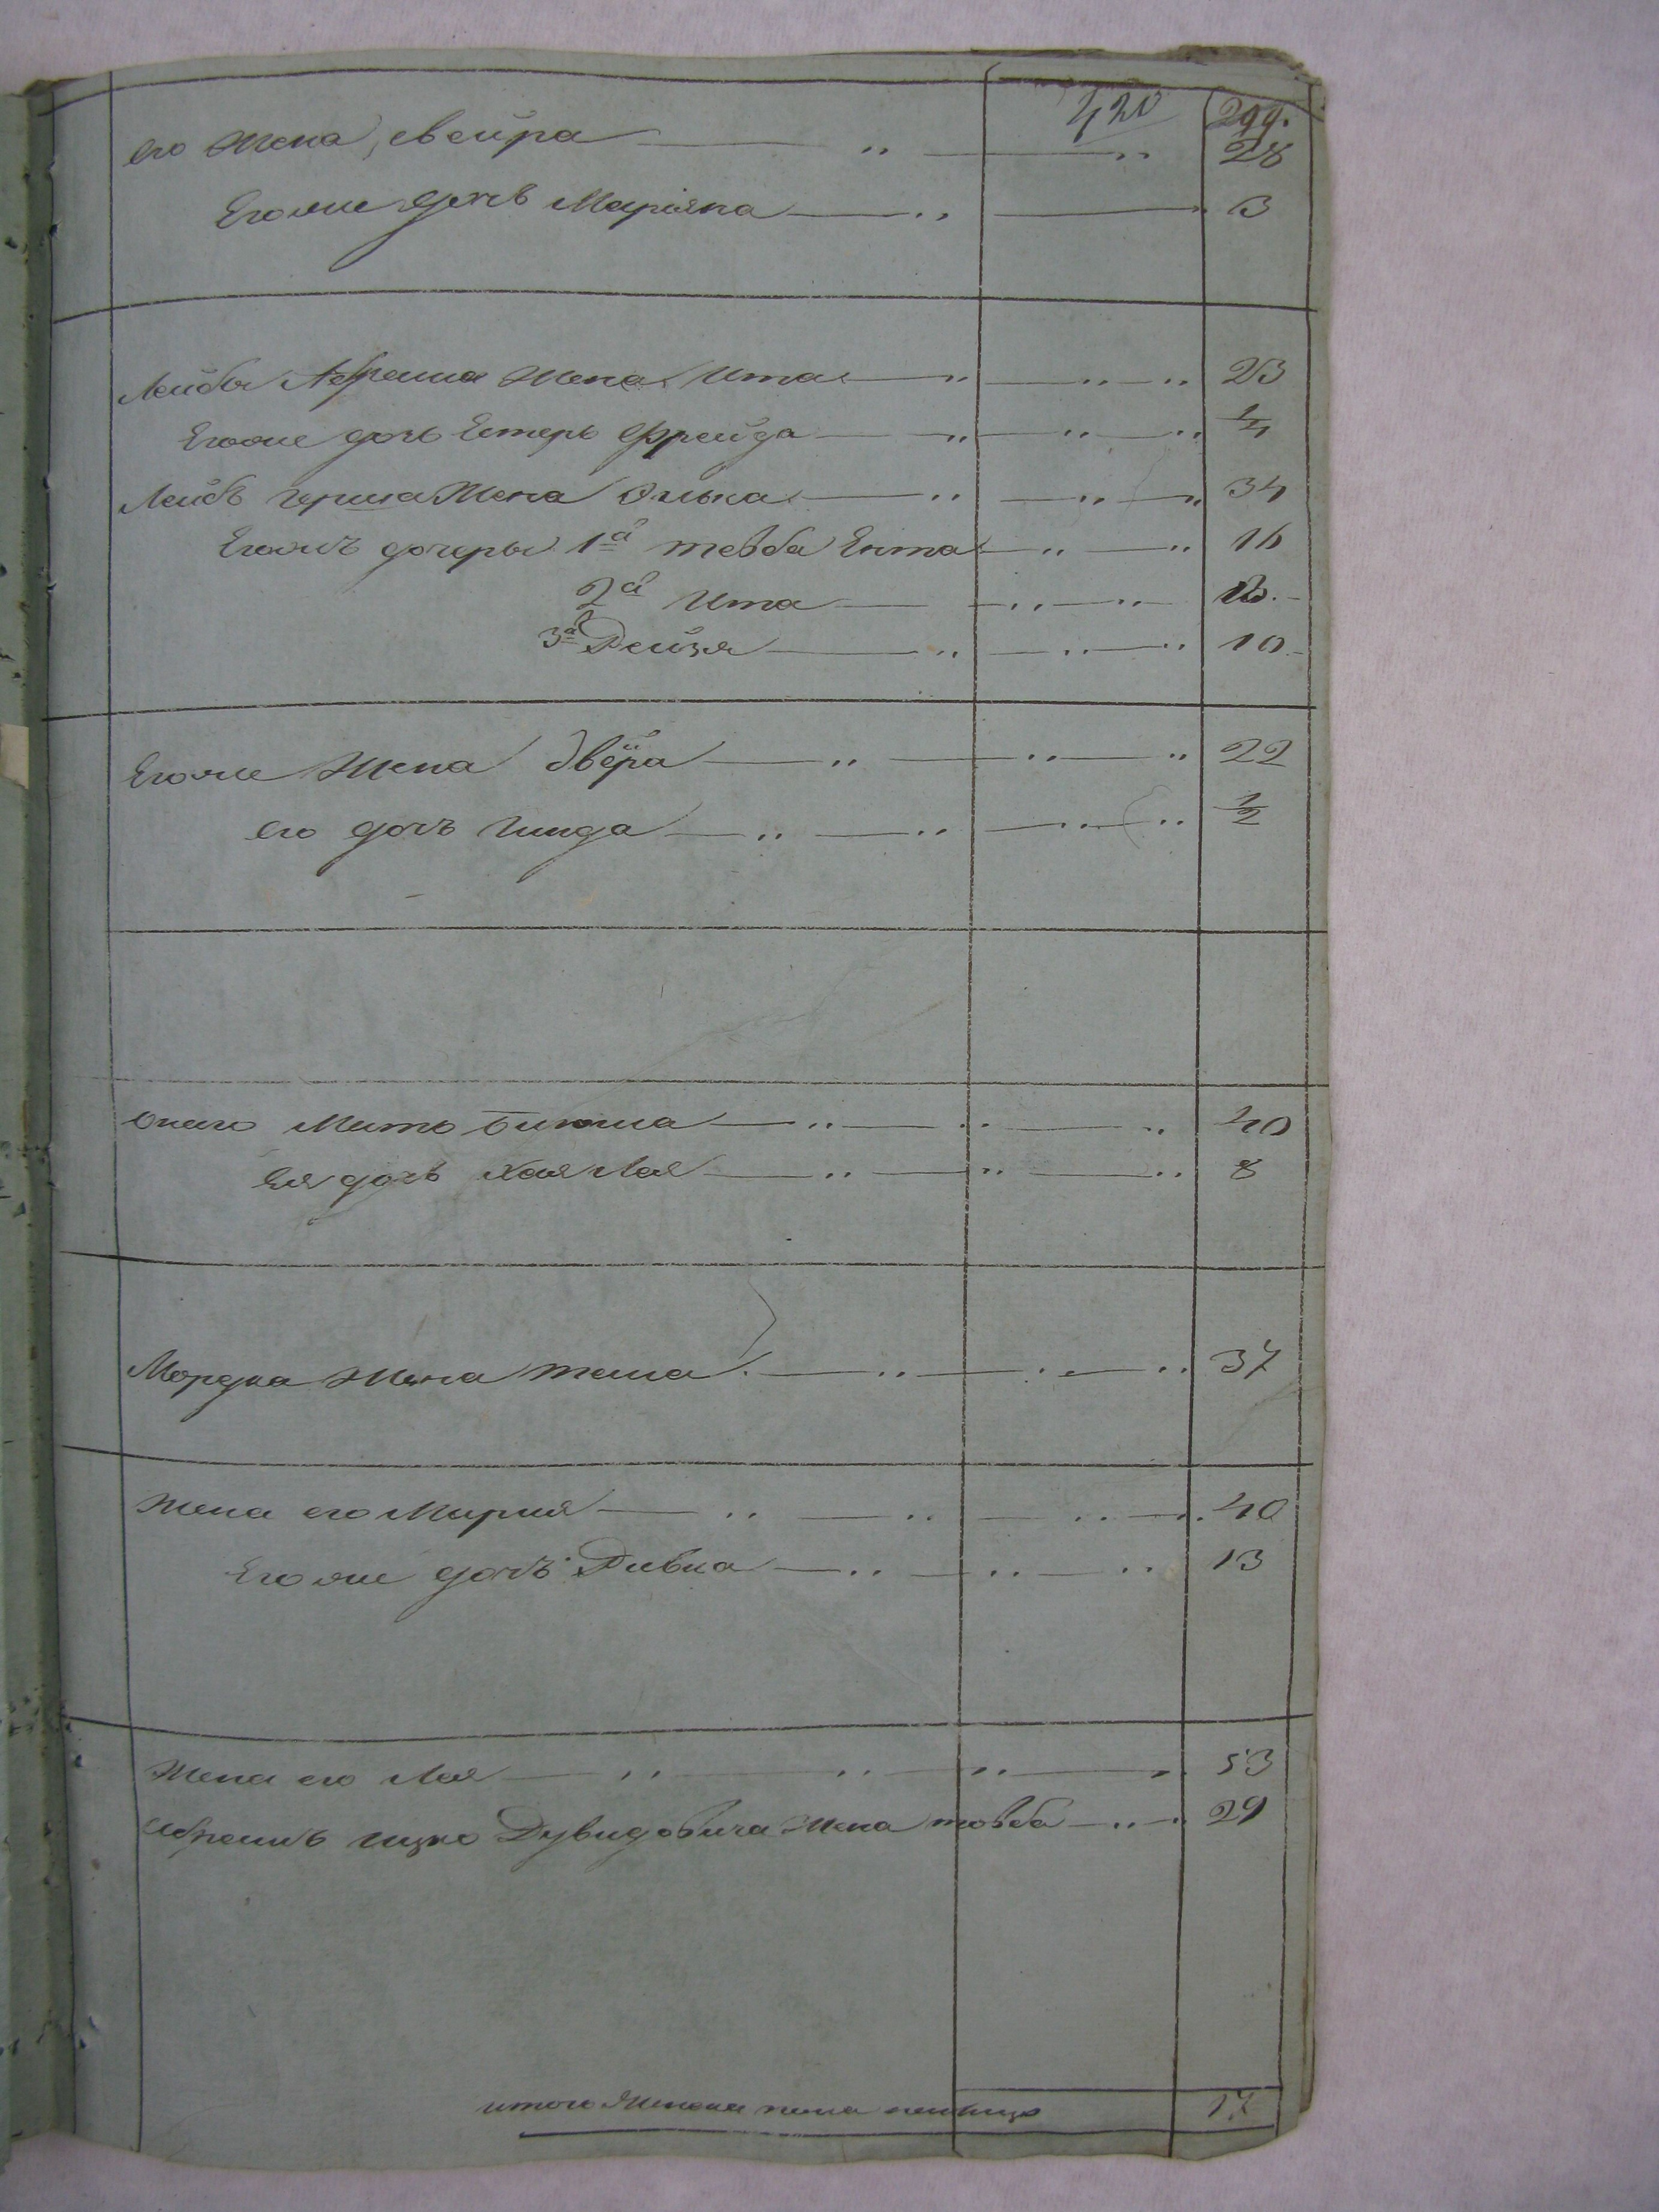 420 299.
его жена, свейра — „ — „ 28
Егоже дочь Маріяна — „ — 3
Лейбы Аврама жена Ита — „ — „ — „ 23
Егоже дочь Естерь Фрейда — „ — „ — „ 1/4
Лейбъ Герша жена Элька — „ — „ — „ 34
Егожъ дочеры 1а товба Ента — „ — „ 16
2а Ита — „ — „ 12.
3а Рейзя — „ — „ — „ 10
Егоже жена Двёра — „ — „ — „ 22
его дочь Гинда — „ — „ — „ — „ 1/2
онаго мать — „ — „ — „ 40
Ея дочь Хая Лая — „ — „ — „ 8
Мордка жена таша — „ — „ — „ 37
жена его Мирия — „ — „ — „ — 40
Егоже дочь Ривка — „ — „ — „ 13
жена его Лая — „ — „ — „ — 53
Абрамъ Ицко Дувидовича жена товба — „ — 29
итого женска пола 17